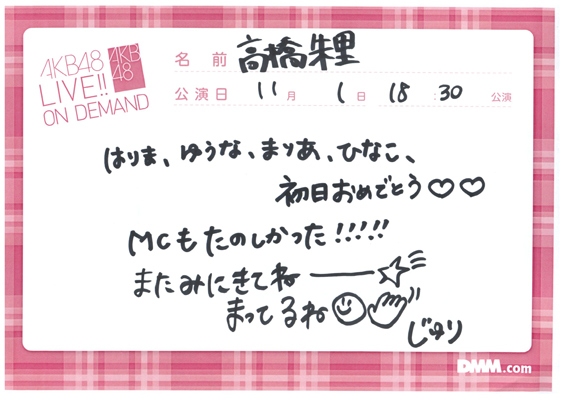 AKB48
LIVE!!
ON DEMAND
AKB
48
名前 高橋朱里
公演日 11月 1日 18:30 公演
はりま、ゆうな、まりあ、ひなこ、
初日おめでとう♡♡
MCもたのしかった!!!!!
またみにきてね――☆
まってるね
じゅり
DMM.com